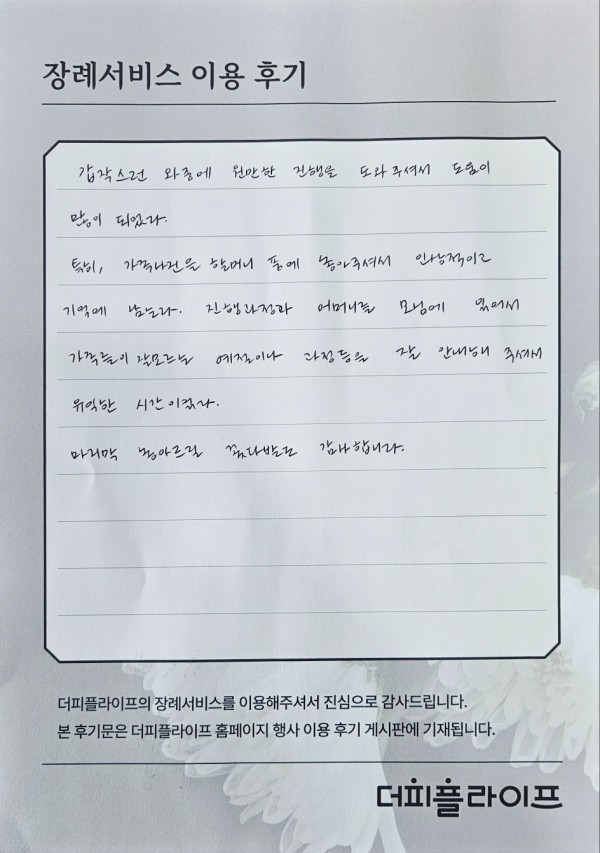 장례서비스 이용 후기
갑작스런 와중에 원만한 진행을 도와주셔서 도움이
많이 되었다.
특히, 가족사진을 할머니 품에 놓아주셔서 인상적이고
기억에 남는다. 진행과정과 어머니를 모심에 있어서
가족들이 잘모르는 예절이나 과정등을 잘 안내해 주셔서
유익한 시간이었다.
마지막 꽃다발도 감사합니다.
더피플라이프의 장례서비스를 이용해주셔서 진심으로 감사드립니다.
본 후기문은 더피플라이프 홈페이지 행사 이용 후기 게시판에 기재됩니다.
더피플라이프